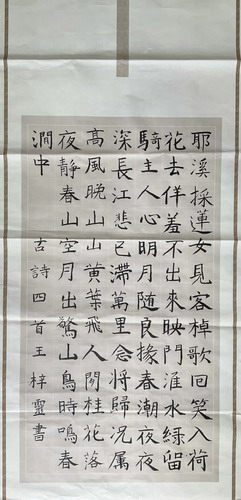 耶溪採蓮女見客棹歌回笑入荷
花去佯羞不出來映門淮水綠留
騎主人心明月隨良掾春潮夜夜
深長江悲已滯萬里念將歸況属
高風晚山山黄葉飛人閒桂花落
夜静春山空月出驚山鳥時鳴春
澗中 古詩四首王梓靈書